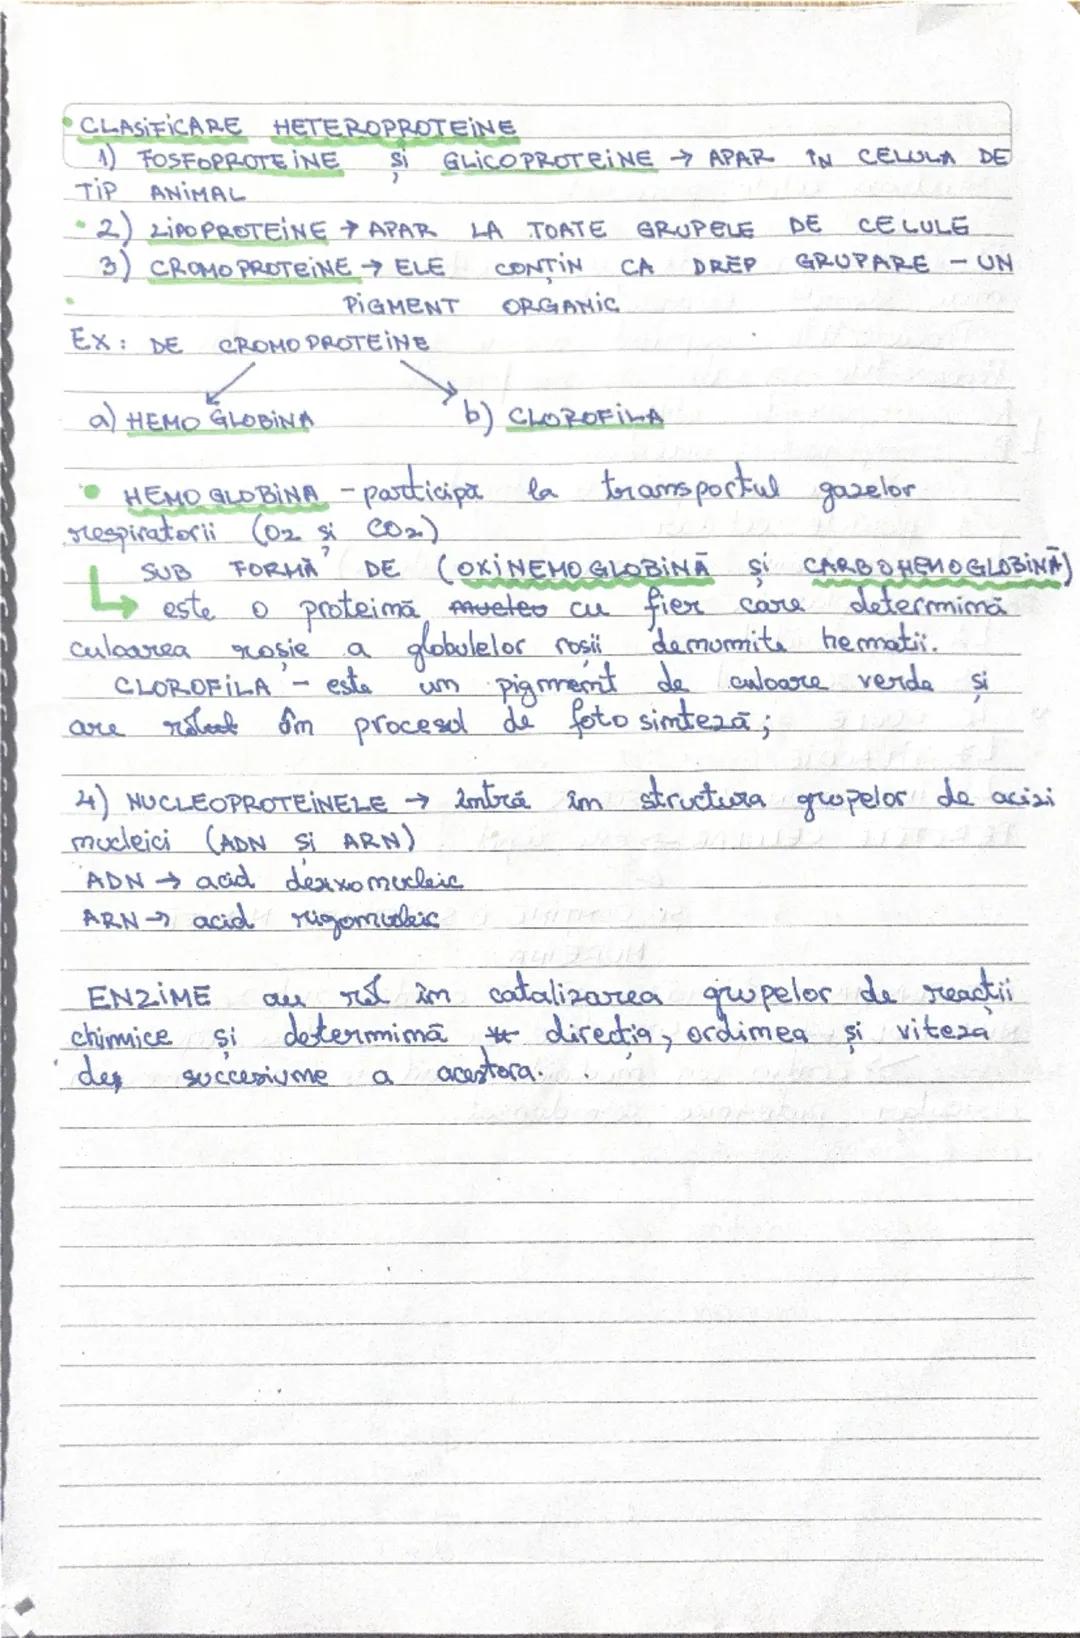 CLASIFICARE HETEROPROTEINE
1) FOSFOPROTEINE și GLICOPROTEINE → APAR ÎN CELULA DE
TIP ANIMAL
2) LIPOPROTEINE → APAR LA TOATE GRUPELE DE CELULE
3) CROMOPROTEINE → ELE CONȚIN CA DREP GRUPARE - UN
PIGMENT ORGANIC
EX: DE CROMOPROTEINE
a) HEMOGLOBINA b) CLOROFILA
HEMOGLOBINA - participă la transportul gazelor
respiratorii (O2 și CO2)
SUB FORMĂ DE (OXINEMOGLOBINĂ și CARBOHEMOGLOBINĂ)
este o proteină cu fier care determină
culoarea roșie a globulelor roșii denumite hematii.
CLOROFILA - este un pigment de culoare verde și
are în procesul de fotosinteză;
4) NUCLEOPROTEINELE → intră în structura grupelor de acizi
nucleici (ADN și ARN)
ADN → acid
ARN → acid
ENZIME au rol în catalizarea grupelor de reacții
chimice și determină direcția, ordinea și viteza
de succesiune a acestora.